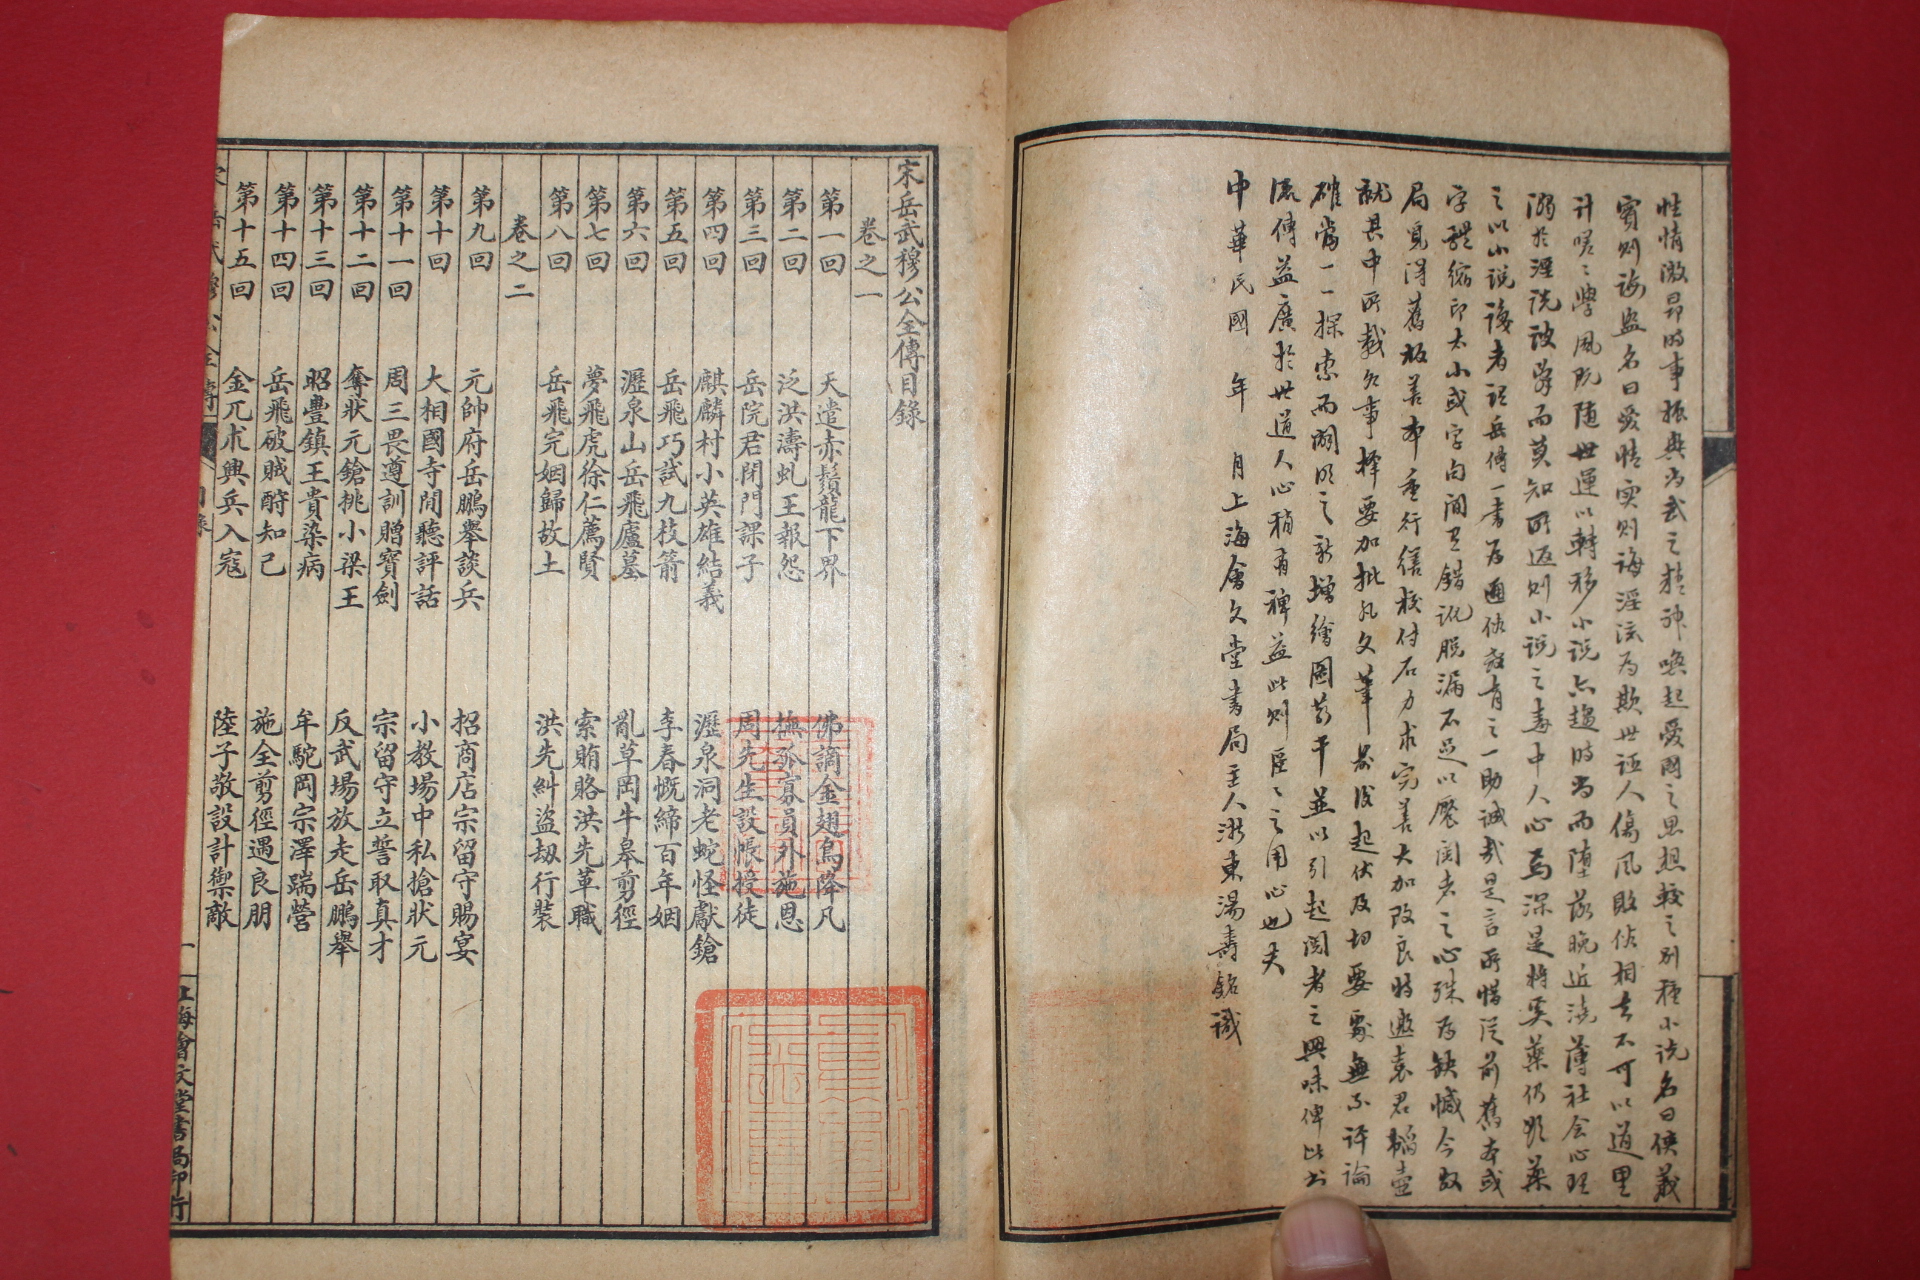 性情激昂時事振興尚武之精神喚起愛國之思想較之別種小說名曰俠義
實則誨盜名曰愛情實則誨淫流為欺世誣人傷風敗俗相去不可以道里
計嗟嗟學風既隨世運以轉移小說亦趨時尚而墮落晚近澆薄社會心理
溺於淫說詖辭而莫知所返則小說之毒中人心為深是將奚藥仍歟藥
之以小說誨者說岳傳一書為通俗教育之一助誠哉是言所惜從前舊本或
字體縮印太小或字句間有錯訛脫漏不足以饜閱者之心殊為缺憾今敝
局覓得舊板善本重行繕校付石力求完善大加改良特邀袁君韜壺
就其中所載各事擇要加批凡文筆前後起伏及切要處無不評論
確當一一探索而闡明之新增繪圖若干並以引起閱者之興味俾此書
流傳益廣於世道人心稍有裨益此則區區之用心也夫
中華民國 年 月上海會文堂書局主人浙東湯壽銘識
宋岳武穆公全傳目錄
卷之一
第一回 天遣赤鬚龍下界 佛謫金翅鳥降凡
第二回 泛洪濤虬王報怨 撫孤寡員外施恩
第三回 岳院君閉門課子 周先生設帳授徒
第四回 麒麟村小英雄結義 瀝泉洞老蛇怪獻鎗
第五回 岳飛巧試九枝箭 李春慨締百年姻
第六回 瀝泉山岳飛廬墓 亂草岡牛皋剪徑
第七回 夢飛虎徐仁薦賢 索賄賂洪先革職
第八回 岳飛完姻歸故土 洪先糾盜劫行裝
卷之二
第九回 元帥府岳鵬舉談兵 招商店宗留守賜宴
第十回 大相國寺間聽評話 小教場中私搶狀元
第十一回 周三畏遵訓贈寶劍 宗留守立誓取真才
第十二回 奪狀元鎗挑小梁王 反武場放走岳鵬舉
第十三回 昭豐鎮王貴染病 牟駝岡宗澤踹營
第十四回 岳飛破賊酧知己 施全剪徑遇良朋
第十五回 金兀朮興兵入寇 陸子敬設計禦敵
宋岳武穆公全傳 目錄 一 上海會文堂書局印行